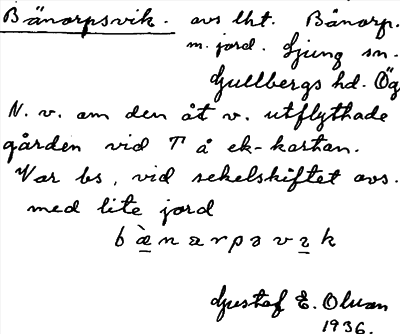 Bänorpsvik. avs lht. Bånorp.
m. jord. Ljung sn.
Gullbergs hd. Ög
N. v. om den åt v. utflyttade
gården vid T å ek-kartan.
Var bs, vid sekelskiftet avs.
med lite jord
Gustaf E. Olsson
1936.